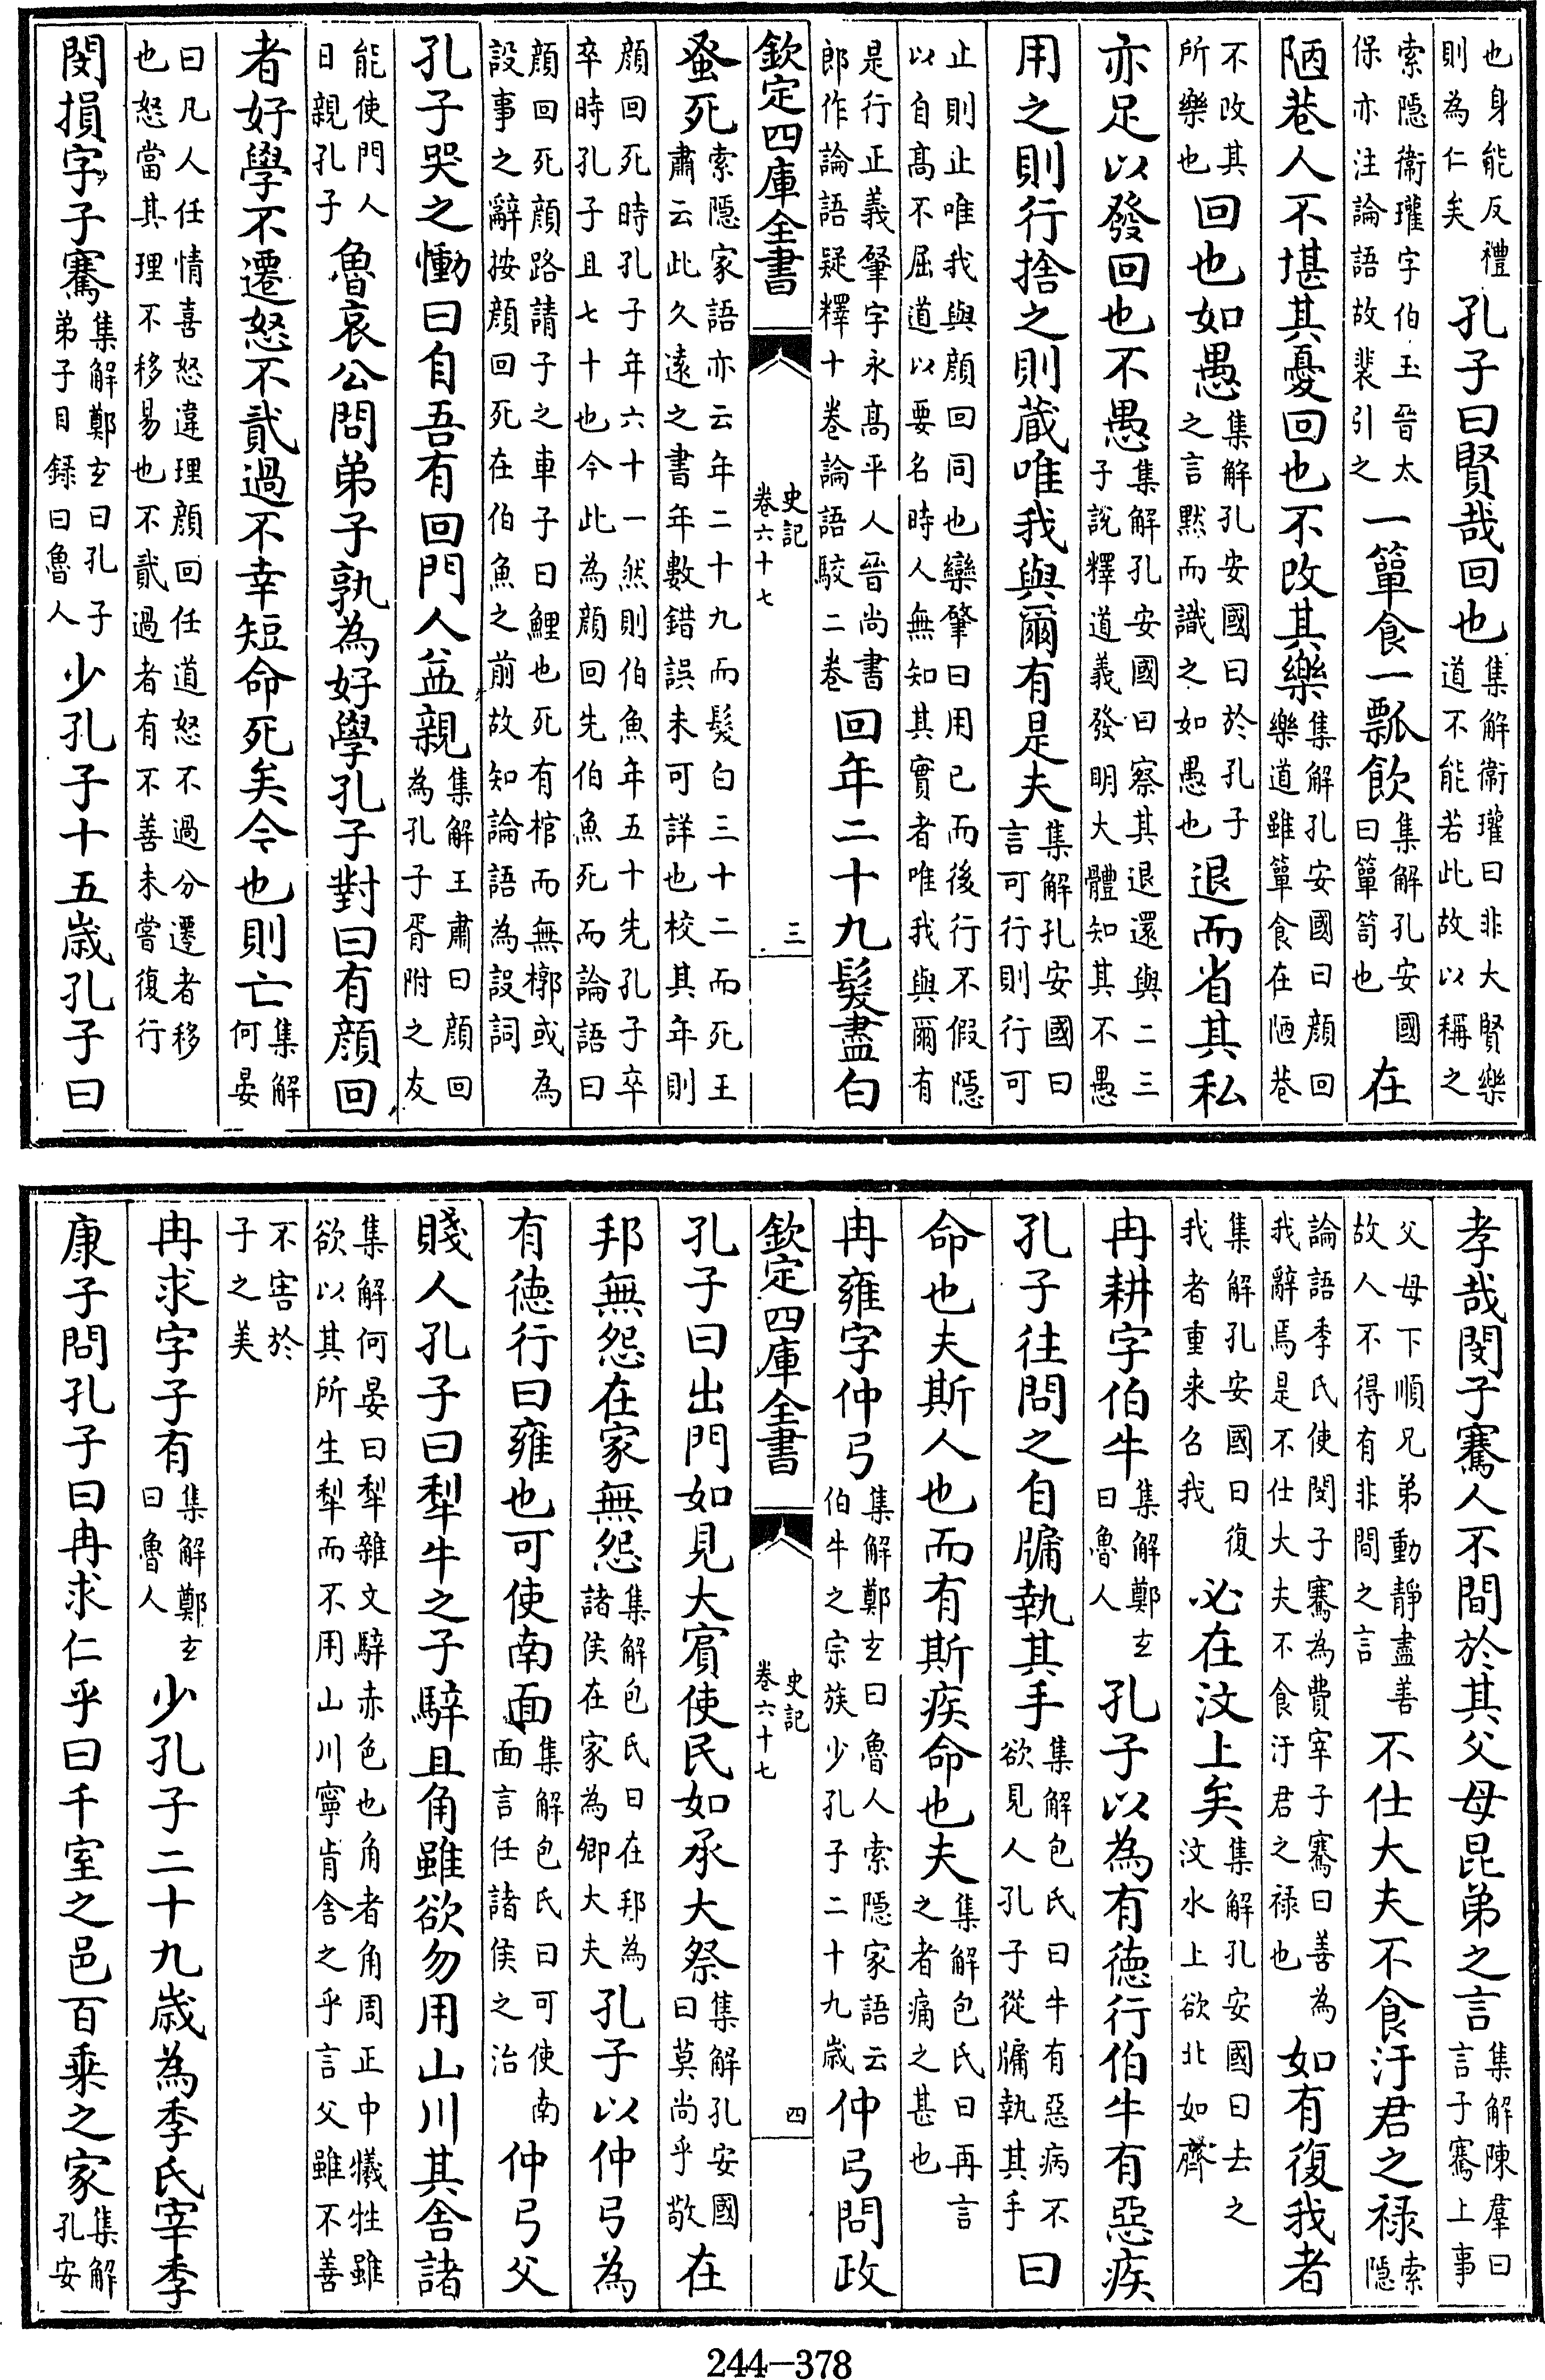 也身能反禮則為仁矣孔子曰賢哉回也集解衛瓘曰非大賢樂道不能若此故以稱之
索隱衛瓘字伯玉晉太保亦注論語故裴引之一簞食一瓢飲集解孔安國曰簞笥也在
陋巷人不堪其憂回也不改其樂集解孔安國曰顔回樂道雖簞食在陋巷
不改其所樂也回也如愚集解孔安國曰於孔子之言黙而識之如愚也退而省其私
亦足以發回也不愚集解孔安國曰察其退還與二三子說釋道義發明大體知其不愚
用之則行捨之則蔵唯我與爾有是夫集解孔安國曰言可行則行可
止則止唯我與顔回同也欒肇曰用已而後行不假隱以自髙不屈道以要名時人無知其實者唯我與爾有
是行正義肇字永髙平人晉尚書郎作論語疑釋十卷論語駮二卷回年二十九髮盡白
欽定四庫全書 史記卷六十七 三
蚤死索隱家語亦云年二十九而髮白三十二而死王肅云此久逺之書年數錯誤未可詳也校其年則
顔回死時孔子年六十一然則伯魚年五十先孔子卒卒時孔子且七十也今此為顔回先伯魚死而論語曰
顔回死顔路請子之車子曰鯉也死有棺而無槨或為設事之辭按顔回死在伯魚之前故知論語為設詞
孔子哭之慟曰自吾有回門人益親集解王肅曰顔回為孔子胥附之友
能使門人日親孔子魯哀公問弟子孰為好學孔子對曰有顔回
者好學不遷怒不貳過不幸短命死矣今也則亡集解何晏
曰凡人任情喜怒違理顔回任道怒不過分遷者移也怒當其理不移易也不貳過者有不善未嘗復行
閔損字子騫集解鄭玄曰孔子弟子目録曰魯人少孔子十五歲孔子曰
孝哉閔子騫人不間於其父母昆弟之言集解陳羣曰言子騫上事
父母下順兄弟動靜盡善故人不得有非間之言不仕大夫不食汙君之禄索隱
論語季氏使閔子騫為費宰子騫曰善為我辭焉是不仕大夫不食汙君之禄也如有復我者
集解孔安國曰復我者重来召我必在汶上矣集解孔安國曰去之汶水上欲北如齊
冉耕字伯牛集解鄭玄曰魯人孔子以為有徳行伯牛有惡疾
孔子往問之自牖執其手集解包氏曰牛有惡病不欲見人孔子從牖執其手曰
命也夫斯人也而有斯疾命也夫集解包氏曰再言之者痛之甚也
冉雍字仲弓集解鄭玄曰魯人索隱家語云伯牛之宗族少孔子二十九歲仲弓問政
欽定四庫全書 史記卷六十七 四
孔子曰出門如見大賔使民如承大祭集解孔安國曰莫尚乎敬在
邦無怨在家無怨集解包氏曰在邦為諸侯在家為卿大夫孔子以仲弓為
有徳行曰雍也可使南面集解包氏曰可使南面言任諸侯之治仲弓父
賤人孔子曰犁牛之子騂且角雖欲勿用山川其舍諸
集解何晏曰犁雜文騂赤色也角者角周正中犧牲雖欲以其所生犁而不用山川寧肯舍之乎言父雖不善
不害於子之美
冉求字子有集解鄭玄曰魯人少孔子二十九歲為季氏宰季
康子問孔子曰冉求仁乎曰千室之邑百乗之家集解孔安
244-378